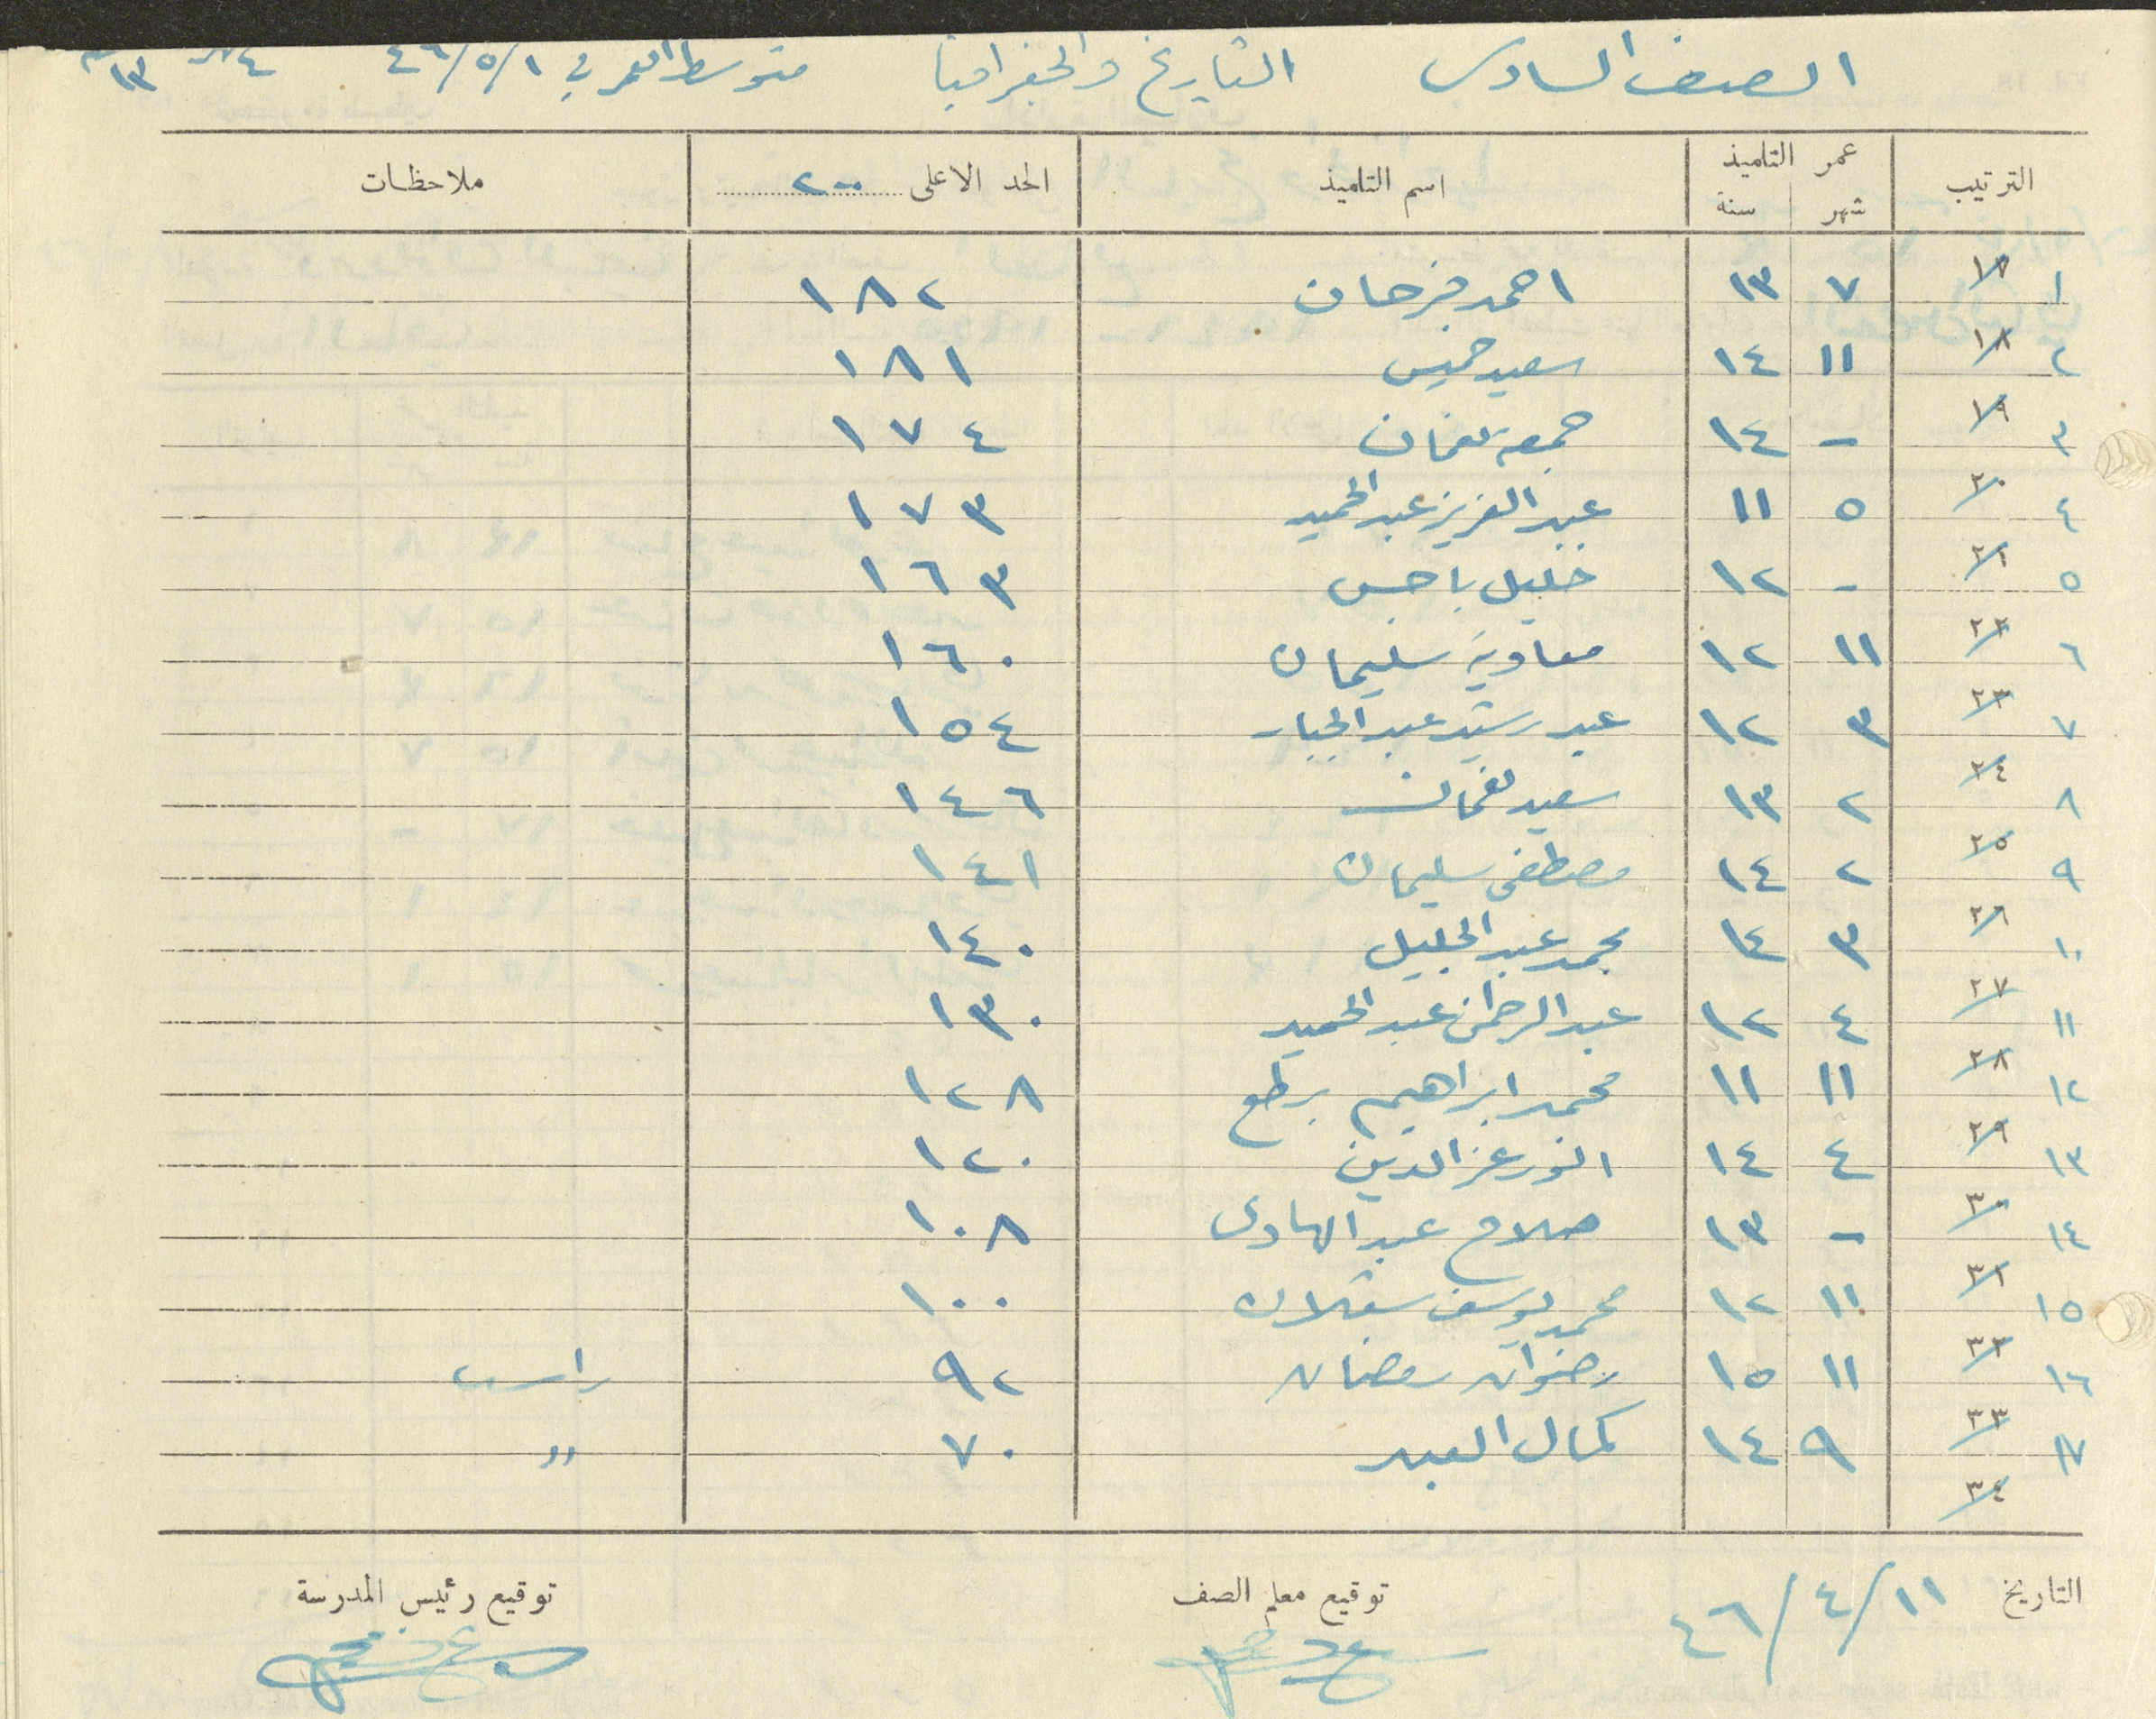 الصف السادس التاريخ والجغرافيا متوسط العمر في ١/٥/٤٦ ٤ ١٣
الترتيب عمر التلميذ اسم التلميذ الحد الاعلى ٢٠٠ ملاحظات
شهر سنة
١ ١٧ ٧ ١٣ احمد فرحان ١٨٢
٢ ١٨ ١١ ١٤ سعيد خميس ١٨١
٣ ١٩ - ١٤ جمعه نعمان ١٧٤
٤ ٢٠ ٥ ١١ عبد العزيز عبد الحميد ١٧٣
٥ ٢١ - ١٢ خليل باجس ١٦٣
٦ ٢٢ ١١ ١٢ معاوية سليمان ١٦٠
٧ ٢٣ ٣ ١٢ عبد رشيد عبد الجبار ١٥٤
٨ ٢٤ ٢ ١٣ سعيد نعمان ١٤٦
٩ ٢٥ ٢ ١٤ مصطفى سليمان ١٤١
١٠ ٢٦ ٣ ١٤ محمد عبد الجليل ١٤٠
١١ ٢٧ ٤ ١٢ عبد الرحمن عبد الحميد ١٣٠
١٢ ٢٨ ١١ ١١ محمد ابراهيم برطع ١٢٨
١٣ ٢٩ ٤ ١٤ انور عز الدين ١٢٠
١٤ ٣٠ - ١٣ صلاح عبد الهادى ١٠٨
١٥ ٣١ ١١ ١٢ محمد يوسف ١٠٠
١٦ ٣٢ ١١ ١٥ رضوان رمضان ٩٢ راسب
١٧ ٣٣ ٩ ١٤ كمال العبد ٧٠ "
٣٤
التاريخ ١١/٤/٤٦ توقيع معلم الصف توقيع رئيس المدرسة